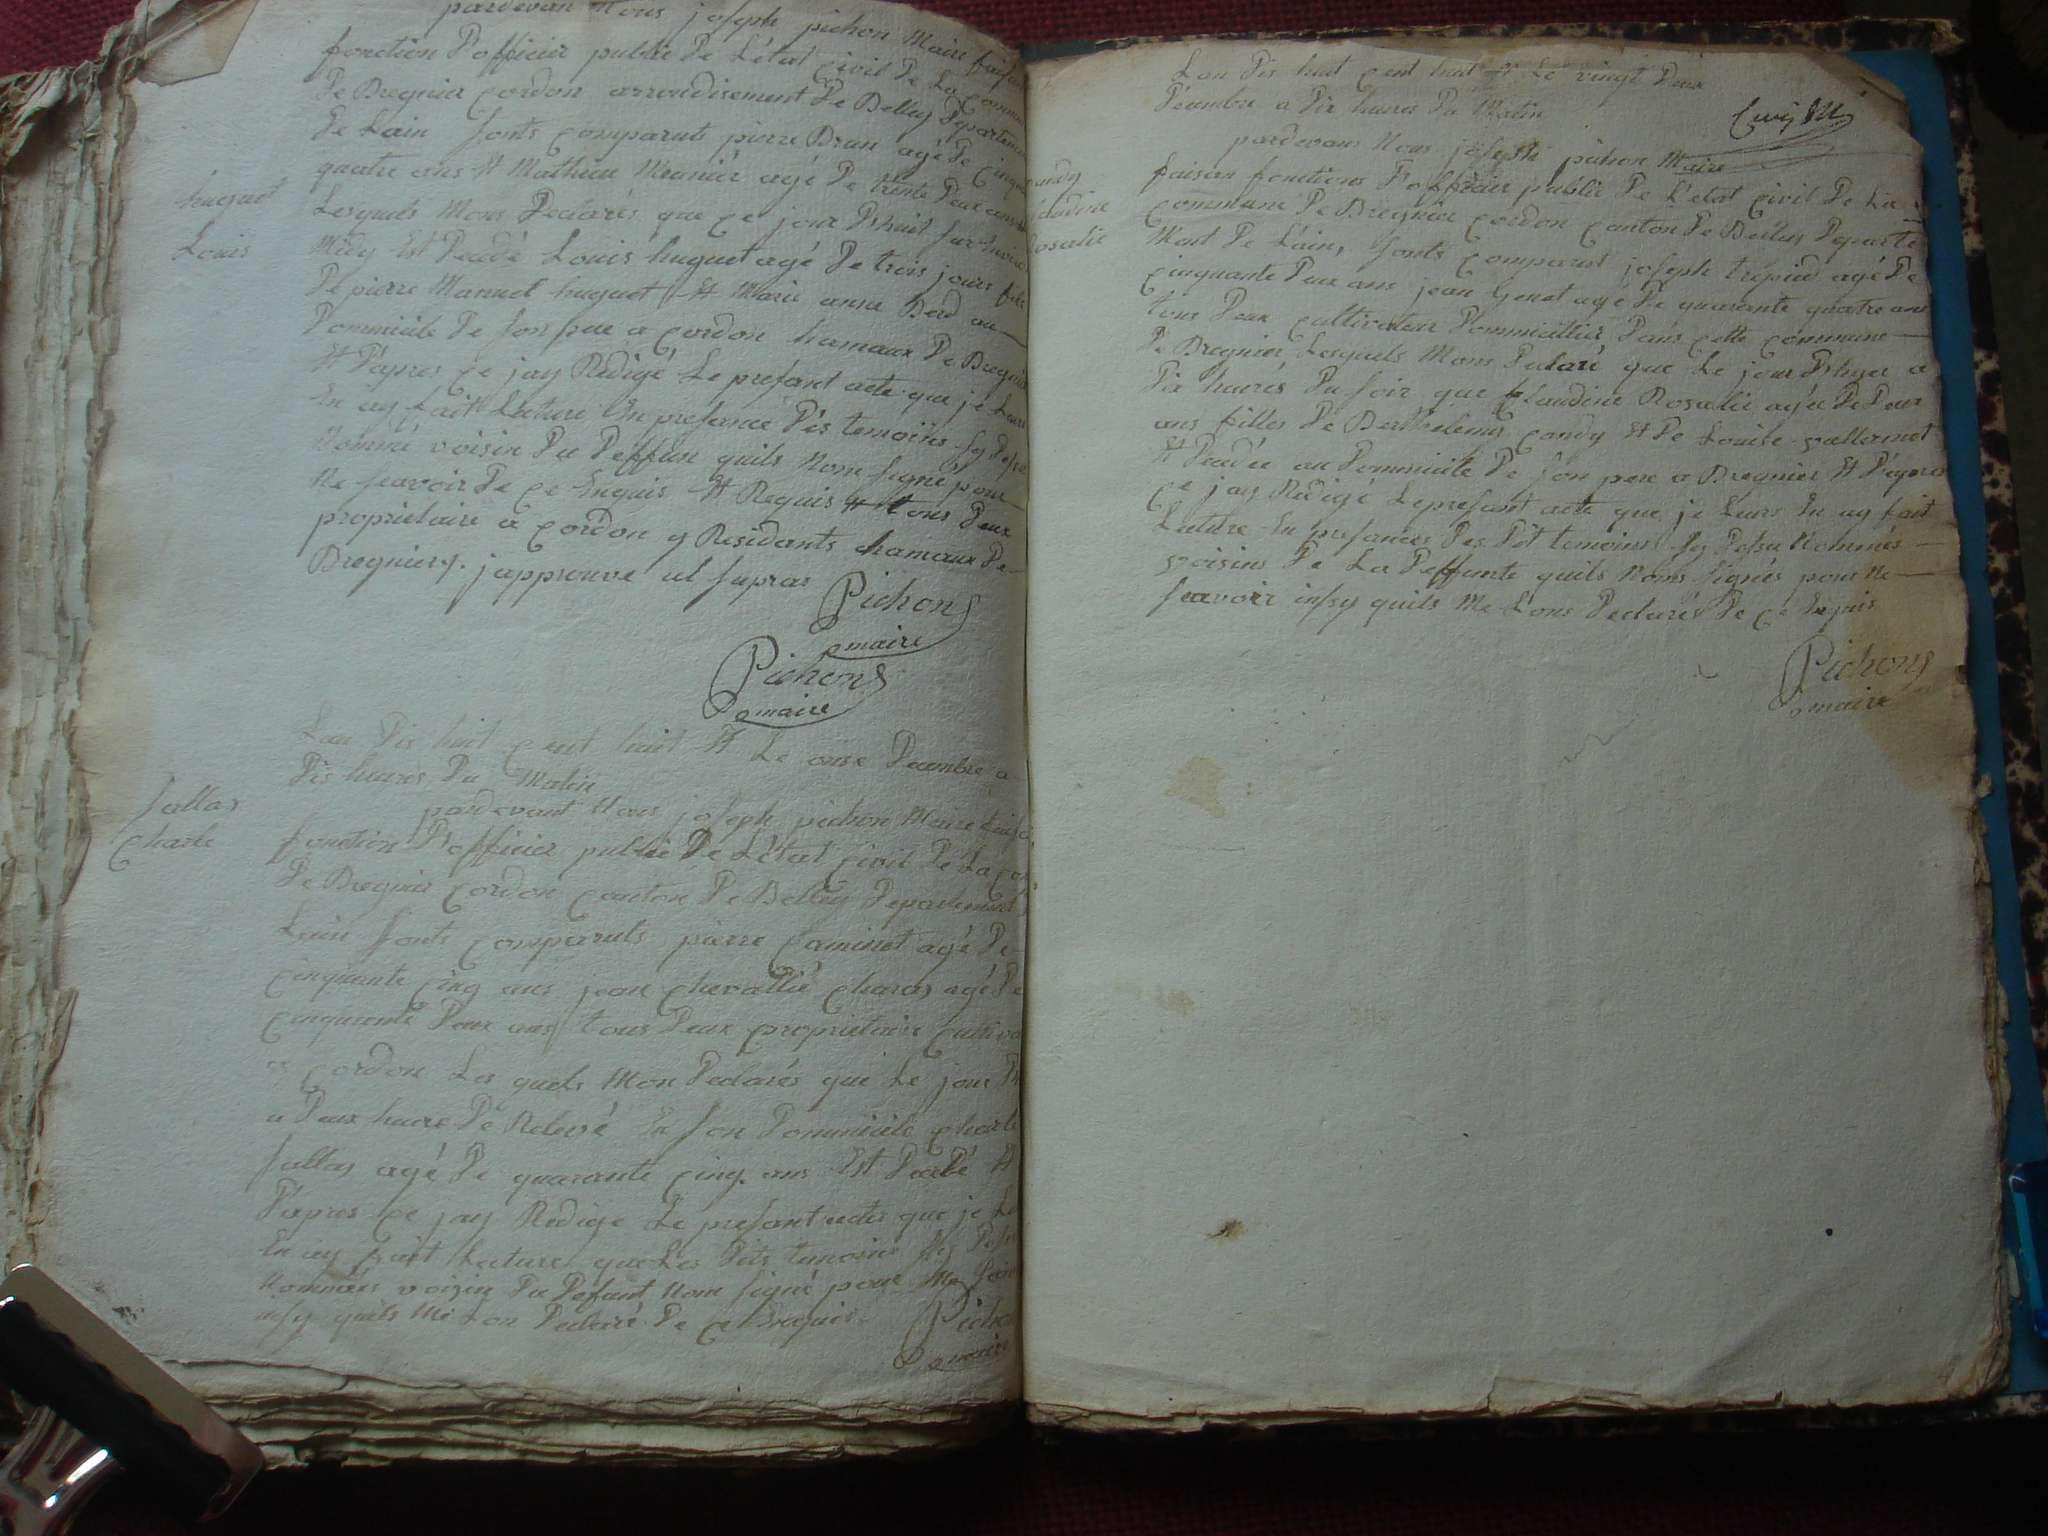 pardevan Nous joseph pichon Maire faisan
fonction D'officier public De L'état civil De La Commun
De Bregnier cordon arrondisement De Belley Departemen
De Lain sonts comparuts pierre Brun agé De cinquan
quatre ans Et Mathieu Meunier agé De trente Deux ans
huguet
Louis
Lesquels Mons Declarés que ce jour Dhuit sur
Midy Est Decedé Louis huguet agé De trois jours fils
De pierre Manuel huguet Et Marie anne Berd au
Dommicile De son pere a cordon hameaux De Bregnier
Et D'apres ce jay Rédigé Le present acte que je Leurs
En ay fait Lecture En presance Des temoiins sy Desu
Nommé voisin Du Deffun quils Nom signé pour
Ne scavoir De ce Enquis Et Requis Et tous Deux
proprietaire a cordon y Residants hameaux De
Bregniery. japprouve ut supras
Pichon
maire
Pichon
maire
Lan Dis huit cent huit Et Le onse Decembre a
Dis heures Du Matin
fallas
Charle
pardevant Nous joseph pichon Maire faisa
fonction D'officier public De L'état civil De La co
De Bregnier cordon canton De Belley Departement
Lain sonts comparruts pierre Caminet agé De
cinquante cinq ans jean chevallié charas agé De
cinquante Deux ans tous Deux proprietaire cultiva
a cordon Les quels Mon Declarés que Le jour
a Deux heure De Relevé En son Dommicile charle
fallas agé De quarante cinq ans Est Decedé Et
D'apres ce jay Redige Le presant actes que je Le
En ay fait Lecture que Les Dits temoins sy Desu
Nommées voisin Du Defunt Nom signé pour Ne scavoi
insy quils Me Lon Declaré De ce Enquis
Pichon
maire
Lan Dis huit cent huit Et Le vingt Deux
Décembre a Dix heures Du Matin
pardevans Nous joseph pichon Maire
candy
claudine
Rosalie
faisan fonctions D'officier public De L'etat civil De La
commune De Bregnier cordon canton De Belley Departe
Ment De L'ain, sonts comparut joseph trepied agé De
cinquante Deux ans jean Genet agé De quarante quatre ans
tous Deux cultivateur Dommicillier Dans cette commune
De Bregnier Lesquels Mons Declaré que Le jour Dhyer a
Dix heures Du soir que Claudine Rosalie agée De Deux
ans filles De Berthelemis candy Et De Louise vallernet
Et Decedée au Dommicile De son pere a Bregnier Et D'apres
ce jay Redigé Le presant acte que je Leurs En ay fait
Lecture En presances Des Dit temoins sy Desu Nommés
voisins De La Deffunte quils Noms signés pour Ne
scavoir insy quils Me Lons Declarés De ce Enquis
Pichon
maire